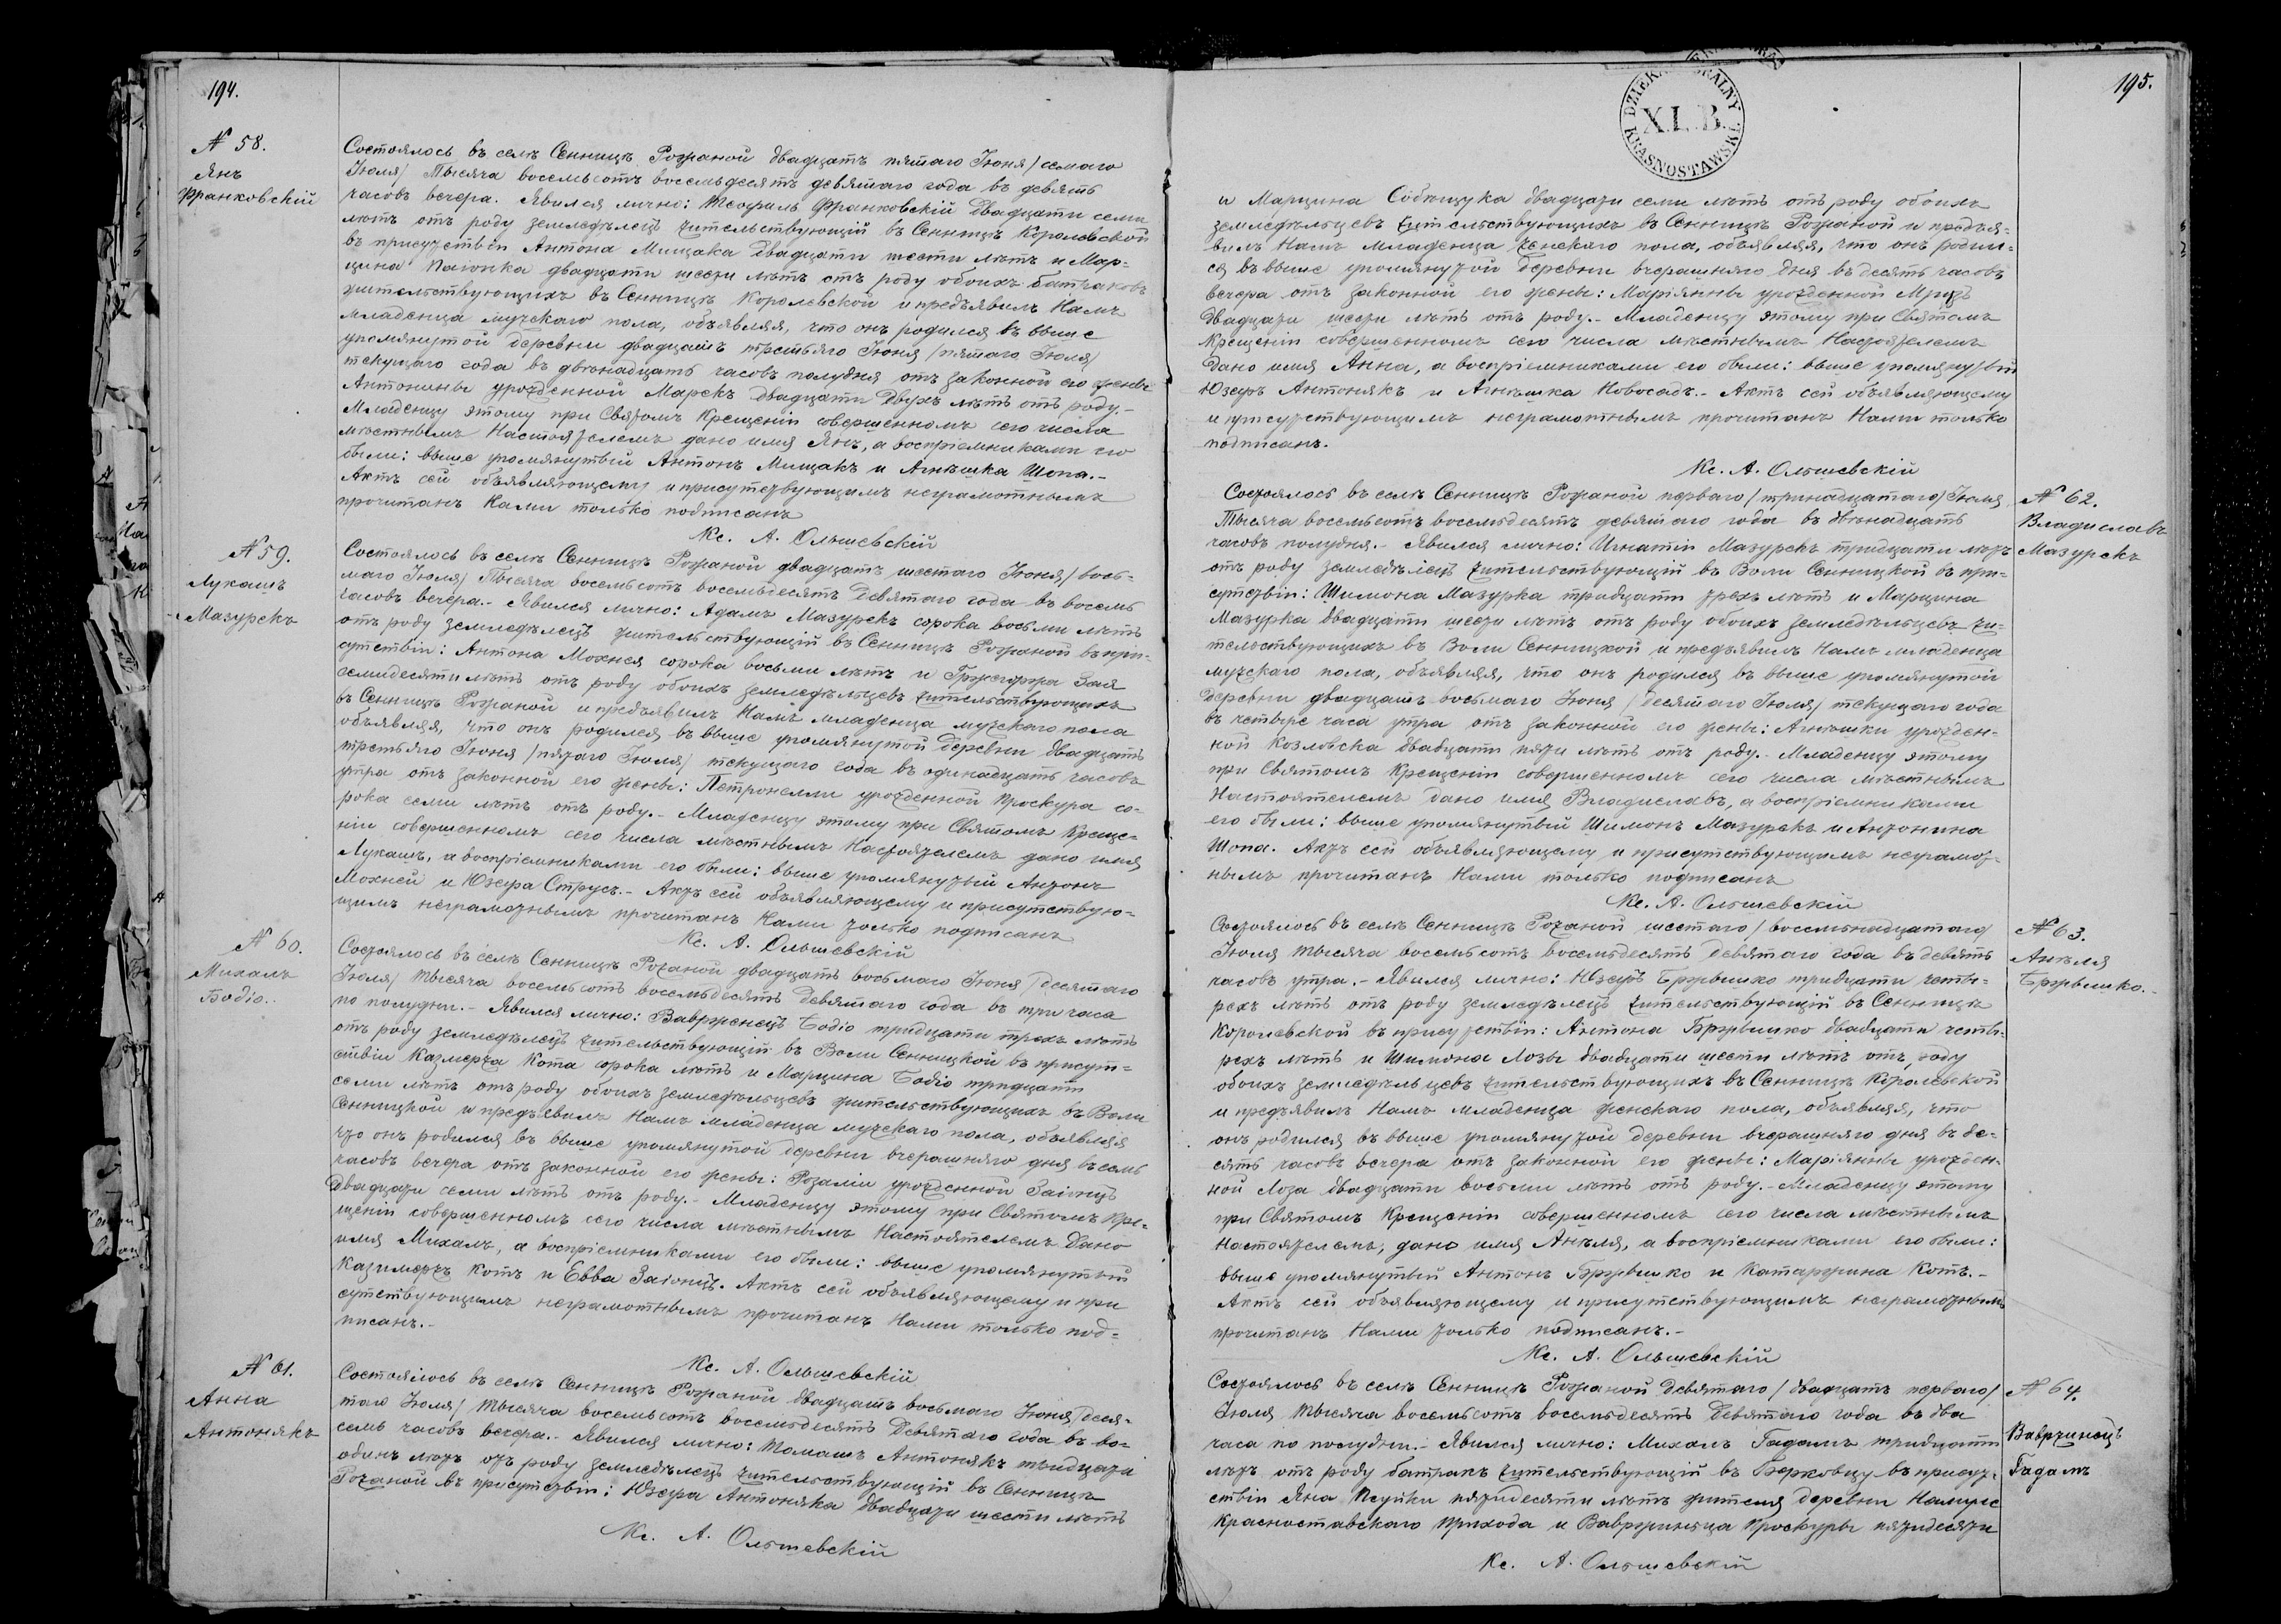 194.
№ 58.
Янъ
Франковскій
Состоялось въ селѣ Сенницѣ Рожаной двадцать пятаго Іюня /седмаго
Іюля/ Тысяча восемьсотъ восемьдесятъ девятаго года въ девять
часовъ вечера. Явился лично: Теофиль Франковскій двадцати семи
лѣтъ отъ роду земледѣлецъ жительствующій въ Сенницѣ Королевской
въ присутствіи Антона Мищака двадцати шести лѣтъ и Мар-
цина двадцати шести лѣтъ отъ роду обоихъ батраковъ
жительствующихъ въ Сенницѣ Королевской и предъявилъ Намъ
младенца мужескаго пола, объявляя, что онъ родился въ выше
упомянутой деревни двадцать третьяго Іюня /пятаго Іюля/
текущаго года въ двѣнадцать часовъ полудня отъ законной его жены
Антонины урожденной Марекъ двадцати двухъ лѣтъ отъ роду.-
Младенцу этому при Святомъ Крещеніи совершенномъ сего числа
мѣстнымъ Настоятелемъ дано имя Янъ, а воспріемниками его
были: выше упомянутый Антонъ Мищакъ и Агнѣшка Шопа.-
Актъ сей объявляющему и присутствующимъ неграмотнымъ
прочитанъ Нами только подписанъ
Кс. А. Ольшевскій
№ 59.
Лукашъ
Мазурекъ
Состоялось въ селѣ Сенницѣ Рожаной двадцать шестаго Іюня /вось-
маго Іюля/ Тысяча восемьсотъ восемьдесятъ девятаго года въ восемь
часовъ вечера.- Явился лично: Адамъ Мазурекъ сорока восьми лѣтъ
отъ роду земледѣлецъ жительствующій въ Сенницѣ Рожаной въ при-
сутствіи: Антона Мохнея сорока восьми лѣтъ и Гржегоржа Зая
семидесяти лѣтъ отъ роду обоихъ земледѣльцевъ жительствующихъ
въ Сенницѣ Рожаной и предъявилъ Намъ младенца мужескаго пола
объявляя, что онъ родился въ выше упомянутой деревни двадцать
третьяго Іюня /пятаго Іюля/ текущаго года въ одинадцать часовъ
утра отъ законной его жены: Петронелли урожденной Проскура со-
рока семи лѣтъ отъ роду.- Младенцу этому при Святомъ Креще-
ніи совершенномъ сего числа мѣстнымъ Настоятелемъ дано имя
Лукашъ, а воспріемниками его были: выше упомянутый Антонъ
Мохней и Юзефа Струсъ.- Актъ сей объявляющему и присутствую-
щимъ неграмотнымъ прочитанъ Нами только подписанъ
Кс. А. Ольшевскій
№ 60.
Михалъ
Бодіо.
Состоялось въ селѣ Сенницѣ Рожаной двадцать восьмаго Іюня /десятаго
Іюля/ тысяча восемьсотъ восемьдесятъ девятаго года въ три часа
по полудни.- Явился лично: Вавржинецъ Бодіо тридцати трехъ лѣтъ
отъ роду земледѣлецъ жительствующій въ Воли Сенницкой въ присут-
ствіи Казмержа Кота сорока лѣтъ и Марцина Бодіо тридцати
семи лѣтъ отъ роду обоихъ земледѣльцевъ жительствующихъ въ Воли
Сенницкой и предъявилъ Намъ младенца мужескаго пола, объявляя
что онъ родился въ выше упомянутой деревни вчерашняго дня въ семь
часовъ вечера отъ законной его жены: Розаліи урожденной Заіонцъ
двадцати семи лѣтъ отъ роду.- Младенцу этому при Святомъ Кре-
щеніи совершенномъ сего числа мѣстнымъ Настоятелемъ дано
имя Михалъ, а воспріемниками его были: выше упомянутый
Казимержъ Котъ и Евва Заіонцъ. Актъ сей объявляющему и при
сутствующимъ неграмотнымъ прочитанъ Нами только под-
писанъ.-
Кс. А. Ольшевскій
№ 61.
Анна
Антонякъ
Состоялось въ селѣ Сенницѣ Рожаной двадцать восьмаго Іюня /деся-
таго Іюля/ тысяча восемьсотъ восемьдесятъ девятаго года въ во-
семь часовъ вечера.- Явился лично: Томашъ Антонякъ тридцати
одинъ лѣтъ отъ роду земледѣлецъ жительствующій въ Сенницѣ
Рожаной въ присутствіи: Юзефа Антоняка двадцати шести лѣтъ
Кс. А. Ольшевскій
195.
DZIEKAN KRASNOSTAWSKI
X.L.B.
и Марцина Собещука двадцати семи лѣтъ отъ роду обоихъ
земледѣльцевъ жительствующихъ въ Сенницѣ Рожаной и предъя-
вилъ Намъ младенца женскаго пола, объявляя, что онъ родил-
ся въ выше упомянутой деревни вчерашняго дня въ десять часовъ
вечера отъ законной его жены: Маріянны урожденной Мрозъ
двадцати шести лѣтъ отъ роду.- Младенцу этому при Святомъ
Крещеніи совершенномъ сего числа мѣстнымъ Настоятелемъ
дано имя Анна, а воспріемниками его были: выше упомянутый
Юзефъ Антонякъ и Агнѣшка Новосадъ.- Актъ сей объявляющему
и присутствующимъ неграмотнымъ прочитанъ Нами только
подписанъ.
Кс. А. Ольшевскій
№ 62.
Владиславъ
Мазурекъ
Состоялось въ селѣ Сенницѣ Рожаной перваго /тринадцатаго/ Іюля
Тысяча восемьсотъ восемьдесятъ девятаго года въ двѣнадцать
часовъ полудня.- Явился лично: Игнатій Мазурекъ тридцати лѣтъ
отъ роду земледѣлецъ жительствующій въ Воли Сенницкой въ при-
сутствіи: Шимона Мазурка тридцати трехъ лѣтъ и Марцина
Мазурка двадцати шести лѣтъ отъ роду обоихъ земледѣльцевъ жи-
тельствующихъ въ Воли Сенницкой и предъявилъ Намъ младенца
мужескаго пола, объявляя, что онъ родился въ выше упомянутой
деревни двадцать восьмаго Іюня /десятаго Іюля/ текущаго года
въ четыре часа утра отъ законной его жены: Агнѣшки урожден-
ной Козловска двадцати пяти лѣтъ отъ роду.- Младенцу этому
при Святомъ Крещеніи совершенномъ сего числа мѣстнымъ
Настоятелемъ дано имя Владиславъ, а воспріемниками
его были: выше упомянутый Шимонъ Мазурекъ и Антонина
Шопа. Актъ сей объявляющему и присутствующимъ неграмот-
нымъ прочитанъ Нами только подписанъ
Кс. А. Ольшевскій
№ 63.
Анѣля
Бржышко.
Состоялось въ селѣ Сенницѣ Рожаной шестаго /восемьнадцатаго/
Іюля тысяча восемьсотъ восемьдесятъ девятаго года въ девять
часовъ утра.- Явился лично: Юзефъ Бржышко тридцати четы-
рехъ лѣтъ отъ роду земледѣлецъ жительствующій въ Сенницѣ
Королевской въ присутствіи: Антона Бржышко двадцати четы-
рехъ лѣтъ и Шимона Лозы двадцати шести лѣтъ отъ роду
обоихъ земледѣльцевъ жительствующихъ въ Сенницѣ Королевской
и предъявилъ Намъ младенца женскаго пола, объявляя, что
онъ родился въ выше упомянутой деревни вчерашняго дня въ де-
сять часовъ вечера отъ законной его жены: Маріянны урожден-
ной Лоза двадцати восьми лѣтъ отъ роду.- Младенцу этому
при Святомъ Крещеніи совершенномъ сего числа мѣстнымъ
Настоятелемъ, дано имя Анѣля, а воспріемниками его были:
выше упомянутый Антонъ Бржышко и Катаржина Котъ.-
Актъ сей объявляющему и присутствующимъ неграмотнымъ
прочитанъ Нами только подписанъ.-
Кс. А. Ольшевскій
№ 64.
Вавржинецъ
Гадамъ
Состоялось въ селѣ Сенницѣ Рожаной девятаго /двадцать перваго/
Іюля тысяча восемьсотъ восемьдесятъ девятаго года въ два
часа по полудни.- Явился лично: Михалъ Гадамъ тридцати
лѣтъ отъ роду батракъ жительствующій въ Барковцу въ присут-
ствіи Яна пятидесяти лѣтъ жителя деревни
Красноставскаго прихода и Вавржинца Проскуры пятидесяти
Кс. А. Ольшевскій